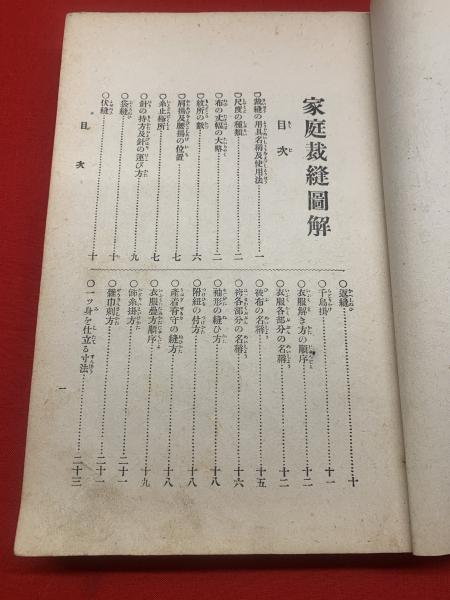 家庭裁縫圖解
目次
〇裁縫の用具名稱及使用法……一
〇尺度の種類……二
〇布の丈幅の大略……二
〇紋所の數……六
〇肩揚及腰揚の位置……七
〇糸止極所……七
〇針の持方及針の運び方……九
〇袋縫……十
〇伏縫……十
〇返縫……十
〇千鳥掛……十一
〇衣服解き方の順序……十二
〇衣服各部分の名稱……十二
〇被布の名稱……十五
〇袴各部分の名稱……十六
〇袖形の縫ひ方……十八
〇附紐の付方……十八
〇產着背守の縫方……十八
〇衣服疊方順序……十九
〇飾糸掛方……二十一
〇雜巾刺方……二十一
〇一ツ身を仕立る寸法……二十三
目次
一